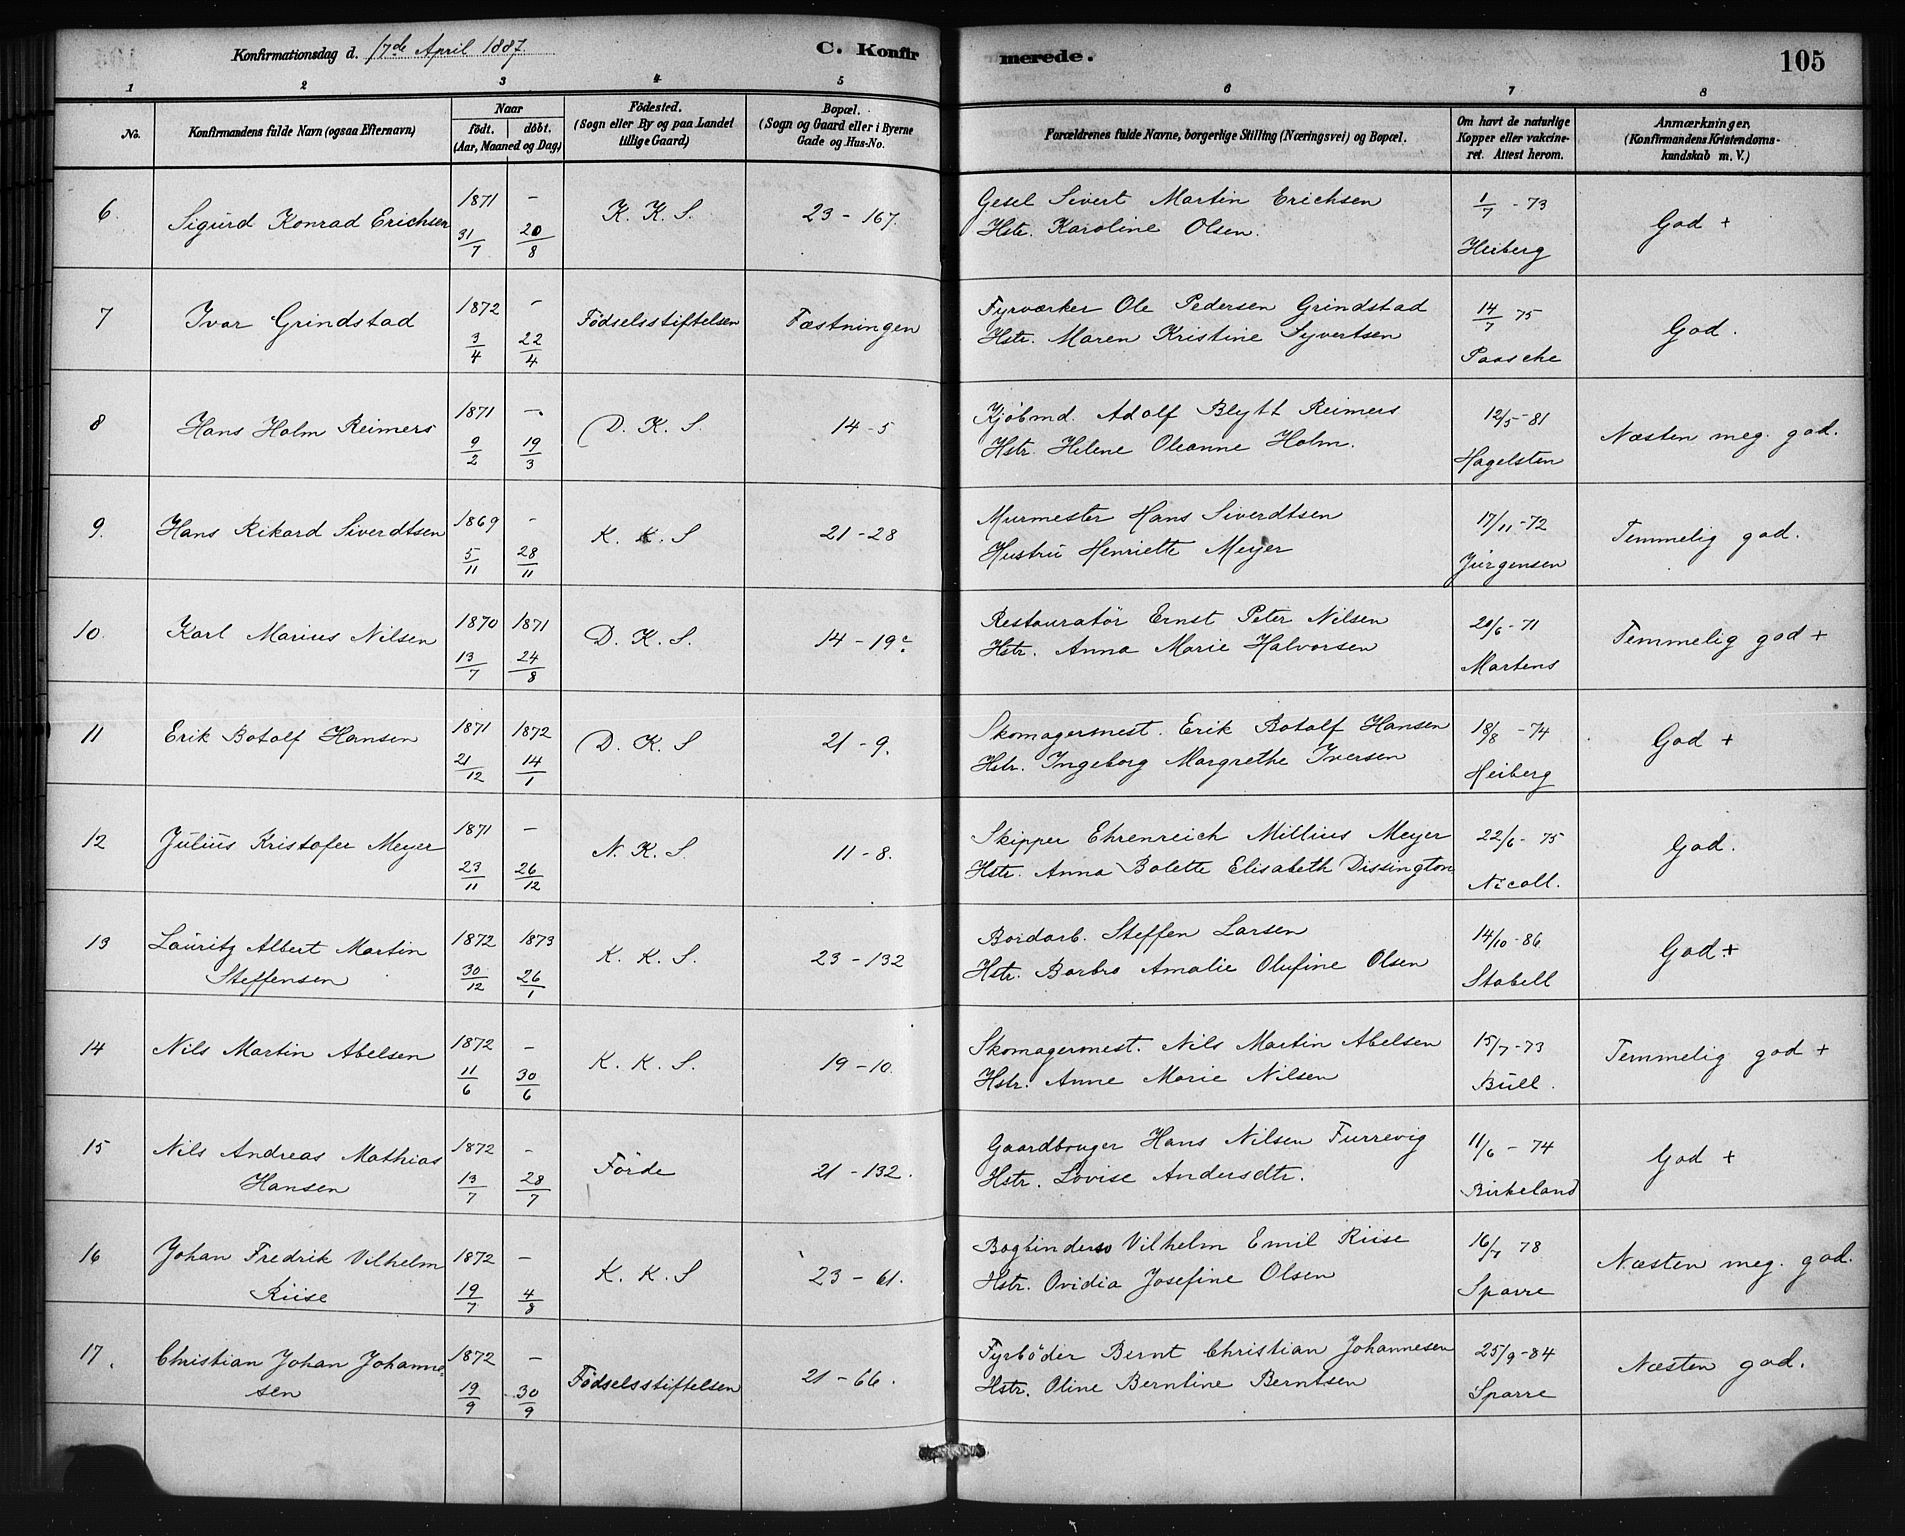 Konfirmationsdag d. 17de April 1887.
C. Konfirmerede.
105
1 2 3 4 5 6 7 8
No.
Konfirmandens fulde Navn (ogsaa Efternavn)
Naar
födt. döbt.
(Aar, Maaned og Dag)
Födested.
(Sogn eller By og paa Landet
tillige Gaard)
Bopæl.
(Sogn og Gaard eller i Byerne
Gade og Hus-No.
Forældrenes fulde Navne, borgerlige Stilling (Næringsvei) og Bopæl.
Om havt de naturlige
Kopper eller vakcine-
ret. Attest herom.
Anmærkninger,
(Konfirmandens Kristendoms-
kundskab m. V.)
6. Sigurd Konrad Erichsen
1871 31/7 – 20/8
K. K. S.
23 – 167.
Gesel Sivert Martin Erichsen
Hstr. Karoline Olsen.
1/7 - 73
Heiberg
God +
7 Ivar Grindstad
1872 3/4 – 22/4
Födselsstiftelsen
Fæstningen
Fyrværker Ole Pedersen Grindstad
Hstr. Maren Kristine Syvertsen
14/7 75
Paasche
God.
8 Hans Holm Reimers
1871 9/2 – 19/3
D. K. S.
14 - 5
Kjöbmd. Adolf Blytt Reimers
Hstr. Helene Oleanne Holm.
12/5 - 81
Hagelsten
Næsten meg. god.
9. Hans Rikard Siverdtsen
1869 5/11 – 28/11
K. K. S
21 - 28
Murmester Hans Siverdtsen
Hustru Henriette Meyer
17/11 - 72
Jürgensen
Temmelig god.
10. Karl Marius Nilsen
1870 13/7 1871 24/8
D. K. S.
14 – 19c
Restauratör Ernst Peter Nilsen
Hstr. Anna Marie Halvorsen
20/6 - 71
Martens
Temmelig god +
11 Erik Botolf Hansen
1871 21/12 1872 14/1
D. K. S
21 - 9.
Skomagermest. Erik Botolf Hansen
Hstr. Ingeborg Margrethe Iversen
18/8 - 74
Heiberg
God +
12 Julius Kristofer Meyer
1871 23/11 – 26/12
N. K. S.
11 - 8.
Skipper Ehrenreich Miltius Meyer
Hstr. Anna Bolette Elisabeth Dissington
22/6 - 75
Nicoll.
God.
13 Lauritz Albert Martin
Steffensen
1872 30/12 1873 26/1
K. K. S.
23 – 132
Bordarb. Steffen Larsen
Hstr. Barbro Amalie Olufine Olsen
14/10 - 86
Stabell
God. +
14 Nils Martin Abelsen
1872 11/6 – 30/6
K. K. S.
19 – 10.
Skomagermest. Nils Martin Abelsen
Hstr. Anne Marie Nilsen
15/7 - 73
Bull.
Temmelig god +
15 Nils Andreas Mathias
Hansen
1872 13/7 – 28/7
Förde
21 – 132.
Gaardbruger Hans Nilsen Furrevig
Hstr. Lovise Andersdtr.
11/6 – 74
Birkeland
God +
16 Johan Fredrik Vilhelm
Riise
1872 19/7 – 4/8
K. K. S
23 – 61.
Bogbinder Vilhelm Emil Riise
Hstr. Ovidia Josefine Olsen
16/7 78
Sparre
Næsten meg. god.
17. Christian Johan Johanne-
sen
1872 19/9 – 30/9
Födselsstiftelsen
21 – 66.
Fyrböder Bernt Christian Johannesen
Hstr. Oline Berntine Berntsen
25/9 - 84
Sparre
Næsten god.